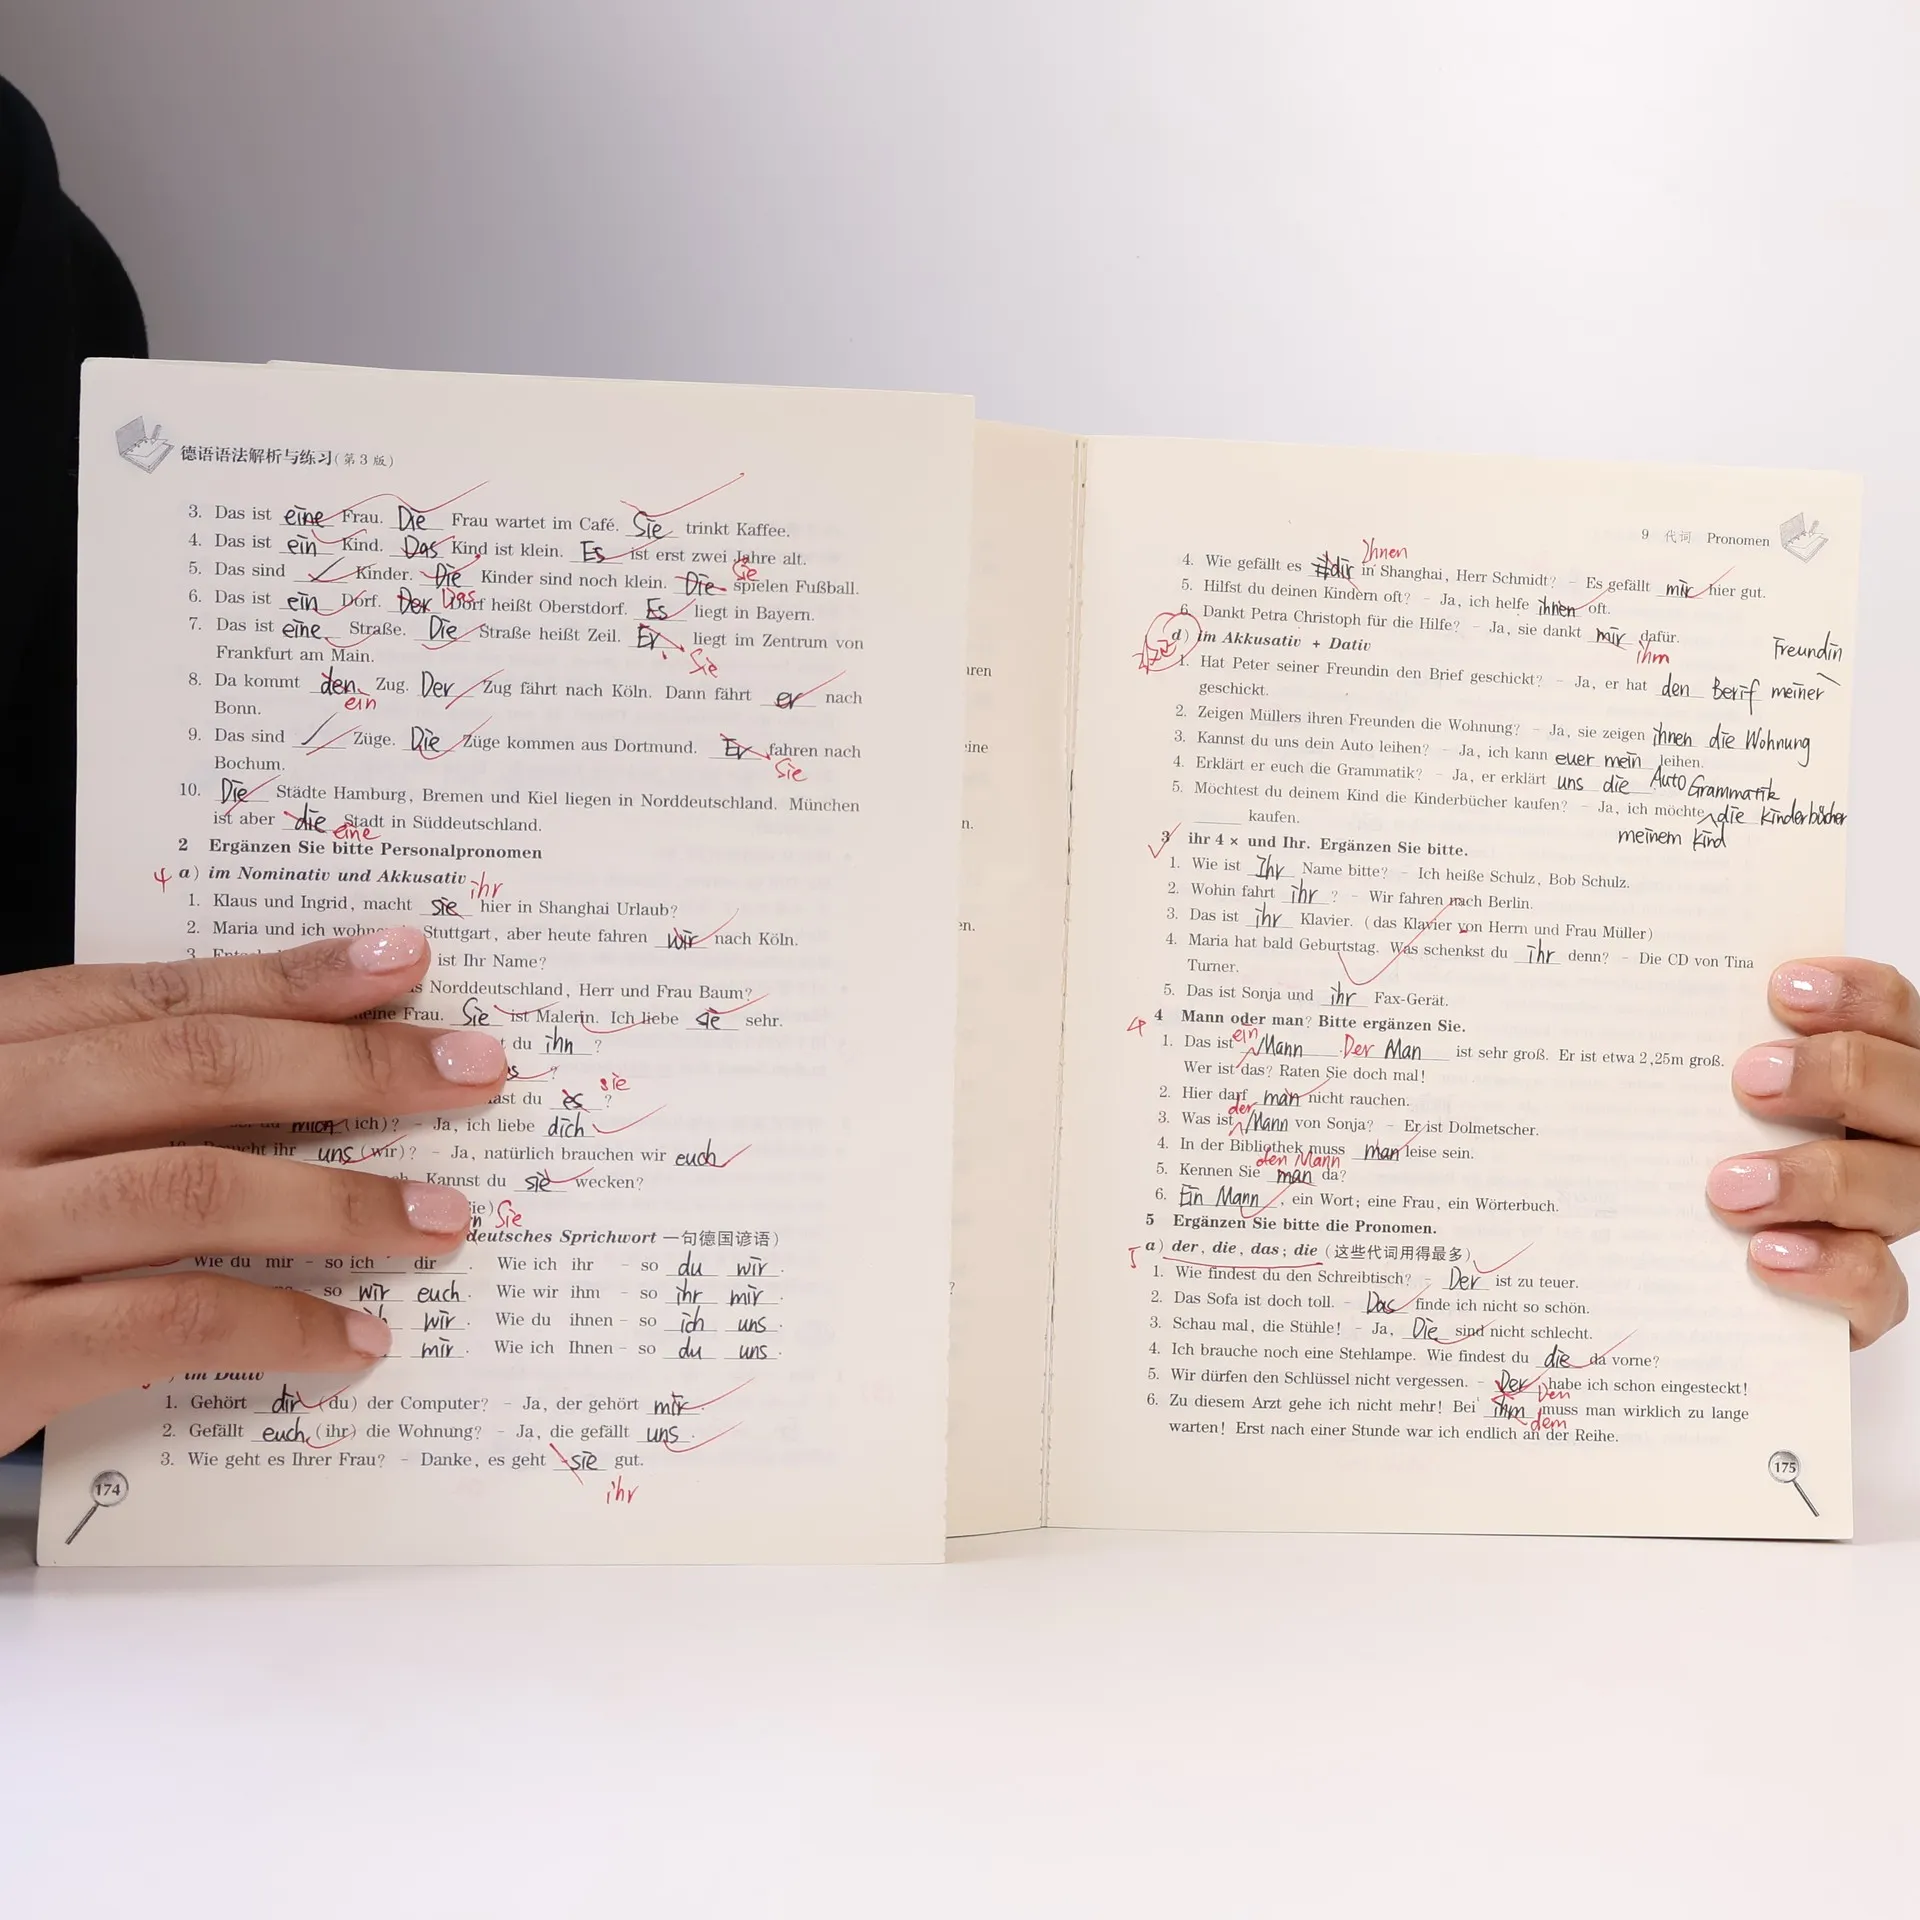 德语语法解析与练习(第3版)
3. Das ist eine Frau. Die Frau wartet im Café. Sie trinkt Kaffee.
4. Das ist ein Kind. Das Kind ist klein. Es ist erst zwei Jahre alt.
Sie
5. Das sind / Kinder. Die Kinder sind noch klein. Die spielen Fußball.
6. Das ist ein Dorf. Der Das Dorf heißt Oberstdorf. Es liegt in Bayern.
7. Das ist eine Straße. Die Straße heißt Zeil. Er liegt im Zentrum von
Frankfurt am Main. Sie
8. Da kommt den Zug. Der Zug fährt nach Köln. Dann fährt er nach
ein
Bonn.
9. Das sind / Züge. Die Züge kommen aus Dortmund. Er fahren nach
Bochum. Sie
10. Die Städte Hamburg, Bremen und Kiel liegen in Norddeutschland. München
ist aber die Stadt in Süddeutschland.
eine
2 Ergänzen Sie bitte Personalpronomen
4 a) im Nominativ und Akkusativ
ihr
1. Klaus und Ingrid, macht sie hier in Shanghai Urlaub?
2. Maria und ich Stuttgart, aber heute fahren wir nach Köln.
3. ist Ihr Name?
Norddeutschland, Herr und Frau Baum?
Frau. Sie ist Malerin. Ich liebe sie sehr.
du ihn ?
?
sie
du es ?
mich (ich)? – Ja, ich liebe dich
ihr uns (wir)? – Ja, natürlich brauchen wir euch
Kannst du sie wecken?
Sie
deutsches Sprichwort 一句德国谚语)
Wie du mir – so ich dir . Wie ich ihr – so du wir .
– so wir euch . Wie wir ihm – so ihr mir .
wir . Wie du ihnen – so ich uns .
mir . Wie ich Ihnen – so du uns .
) im Dativ
1. Gehört dir (du) der Computer? – Ja, der gehört mir .
2. Gefällt euch (ihr) die Wohnung? – Ja, die gefällt uns .
3. Wie geht es Ihrer Frau? – Danke, es geht sie gut.
ihr
174
9 代词 Pronomen
Ihnen
4. Wie gefällt es dir in Shanghai, Herr Schmidt? – Es gefällt mir hier gut.
5. Hilfst du deinen Kindern oft? – Ja, ich helfe ihnen oft.
6. Dankt Petra Christoph für die Hilfe? – Ja, sie dankt mir dafür.
ihm
d) im Akkusativ + Dativ
Freundin
1. Hat Peter seiner Freundin den Brief geschickt? – Ja, er hat den Berif meiner
geschickt.
2. Zeigen Müllers ihren Freunden die Wohnung? – Ja, sie zeigen ihnen die Wohnung
3. Kannst du uns dein Auto leihen? – Ja, ich kann euer mein leihen.
Auto
4. Erklärt er euch die Grammatik? – Ja, er erklärt uns die Grammatik
5. Möchtest du deinem Kind die Kinderbücher kaufen? – Ja, ich möchte die Kinderbücher
kaufen. meinem Kind
3 ihr 4 × und Ihr. Ergänzen Sie bitte.
1. Wie ist Ihr Name bitte? – Ich heiße Schulz, Bob Schulz.
2. Wohin fahrt ihr ? – Wir fahren nach Berlin.
3. Das ist ihr Klavier. (das Klavier von Herrn und Frau Müller)
4. Maria hat bald Geburtstag. Was schenkst du ihr denn? – Die CD von Tina
Turner.
5. Das ist Sonja und ihr Fax-Gerät.
4 Mann oder man? Bitte ergänzen Sie.
ein
1. Das ist Mann . Der Man ist sehr groß. Er ist etwa 2,25m groß.
Wer ist das? Raten Sie doch mal!
2. Hier darf man nicht rauchen.
der
3. Was ist Mann von Sonja? – Er ist Dolmetscher.
4. In der Bibliothek muss man leise sein.
den Mann
5. Kennen Sie man da?
6. Ein Mann , ein Wort; eine Frau, ein Wörterbuch.
5 Ergänzen Sie bitte die Pronomen.
a) der, die, das; die (这些代词用得最多)
1. Wie findest du den Schreibtisch? – Der ist zu teuer.
2. Das Sofa ist doch toll. – Das finde ich nicht so schön.
3. Schau mal, die Stühle! – Ja, Die sind nicht schlecht.
4. Ich brauche noch eine Stehlampe. Wie findest du die da vorne?
5. Wir dürfen den Schlüssel nicht vergessen. – Der habe ich schon eingesteckt!
Den
6. Zu diesem Arzt gehe ich nicht mehr! Bei ihm muss man wirklich zu lange
dem
warten! Erst nach einer Stunde war ich endlich an der Reihe.
175